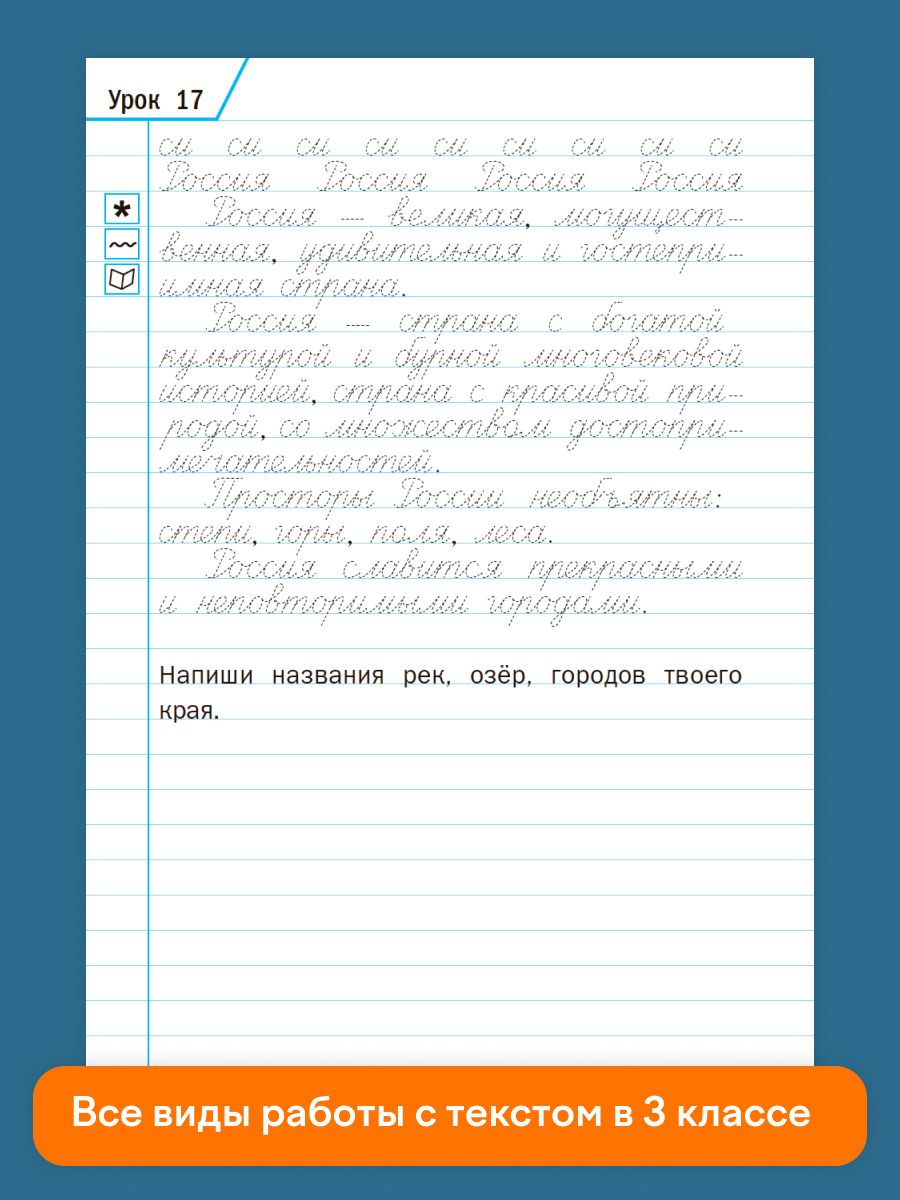 Урок 17
си си си си си си си си си
Россия Россия Россия Россия
Россия — великая, могущест-
*
венная, удивительная и гостепри-
имная страна.
Россия — страна с богатой
культурой и бурной многовековой
историей, страна с красивой при-
родой, со множеством достопри-
мечательностей.
Просторы России необъятны:
степи, горы, поля, леса.
Россия славится прекрасными
и неповторимыми городами.
Напиши названия рек, озёр, городов твоего
края.
Все виды работы с текстом в 3 классе